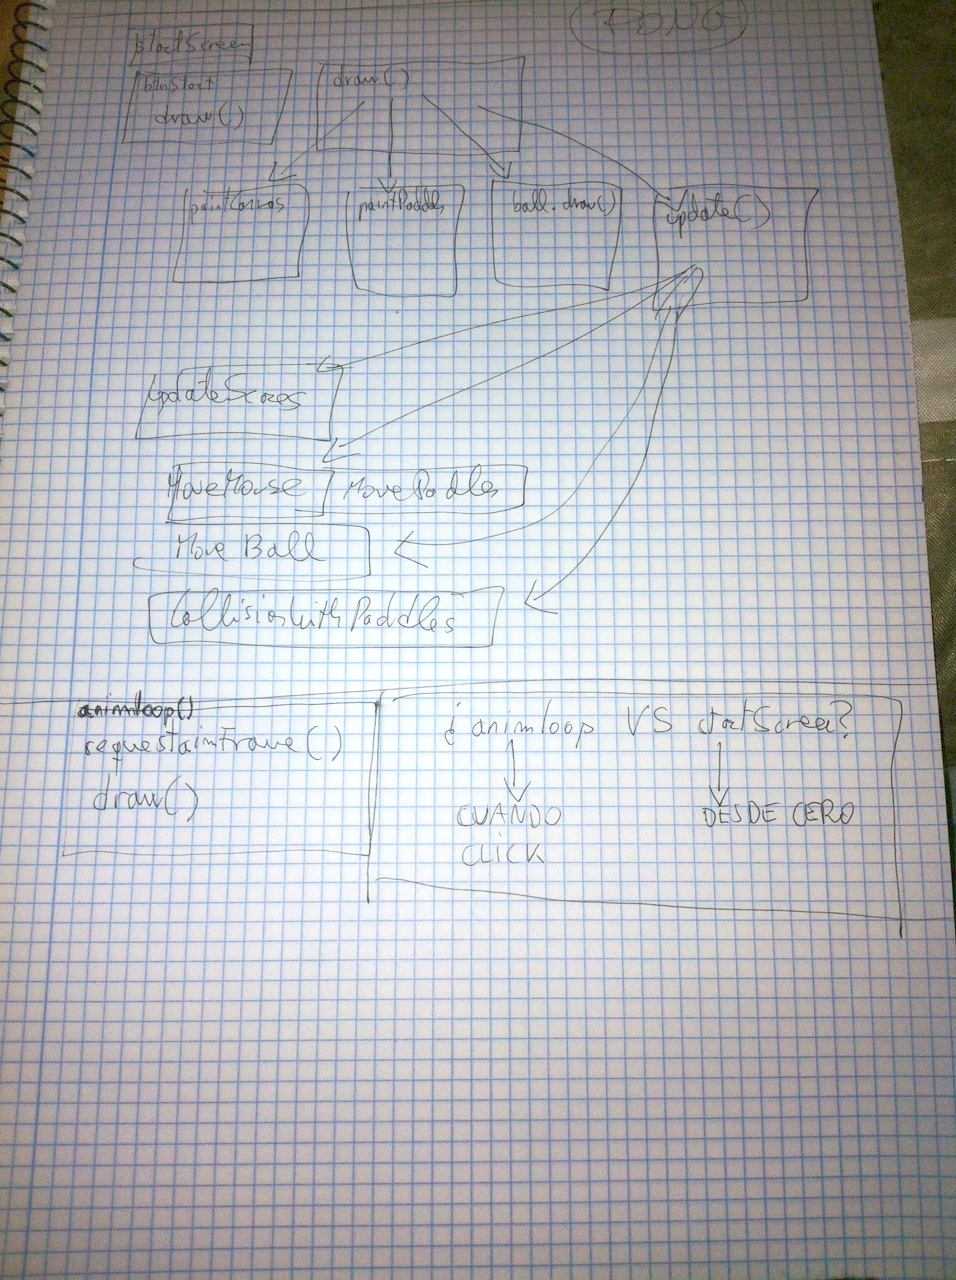 PONG
startScreen
btnStart
draw()
draw()
paintCanvas
paintPaddles
ball.draw()
update()
UpdateScores
MoveMouse
MovePaddles
Move Ball
CollisionWithPaddles
animloop()
requestaimFrame()
draw()
¿animloop VS startScreen?
CUANDO
CLICK
DESDE CERO